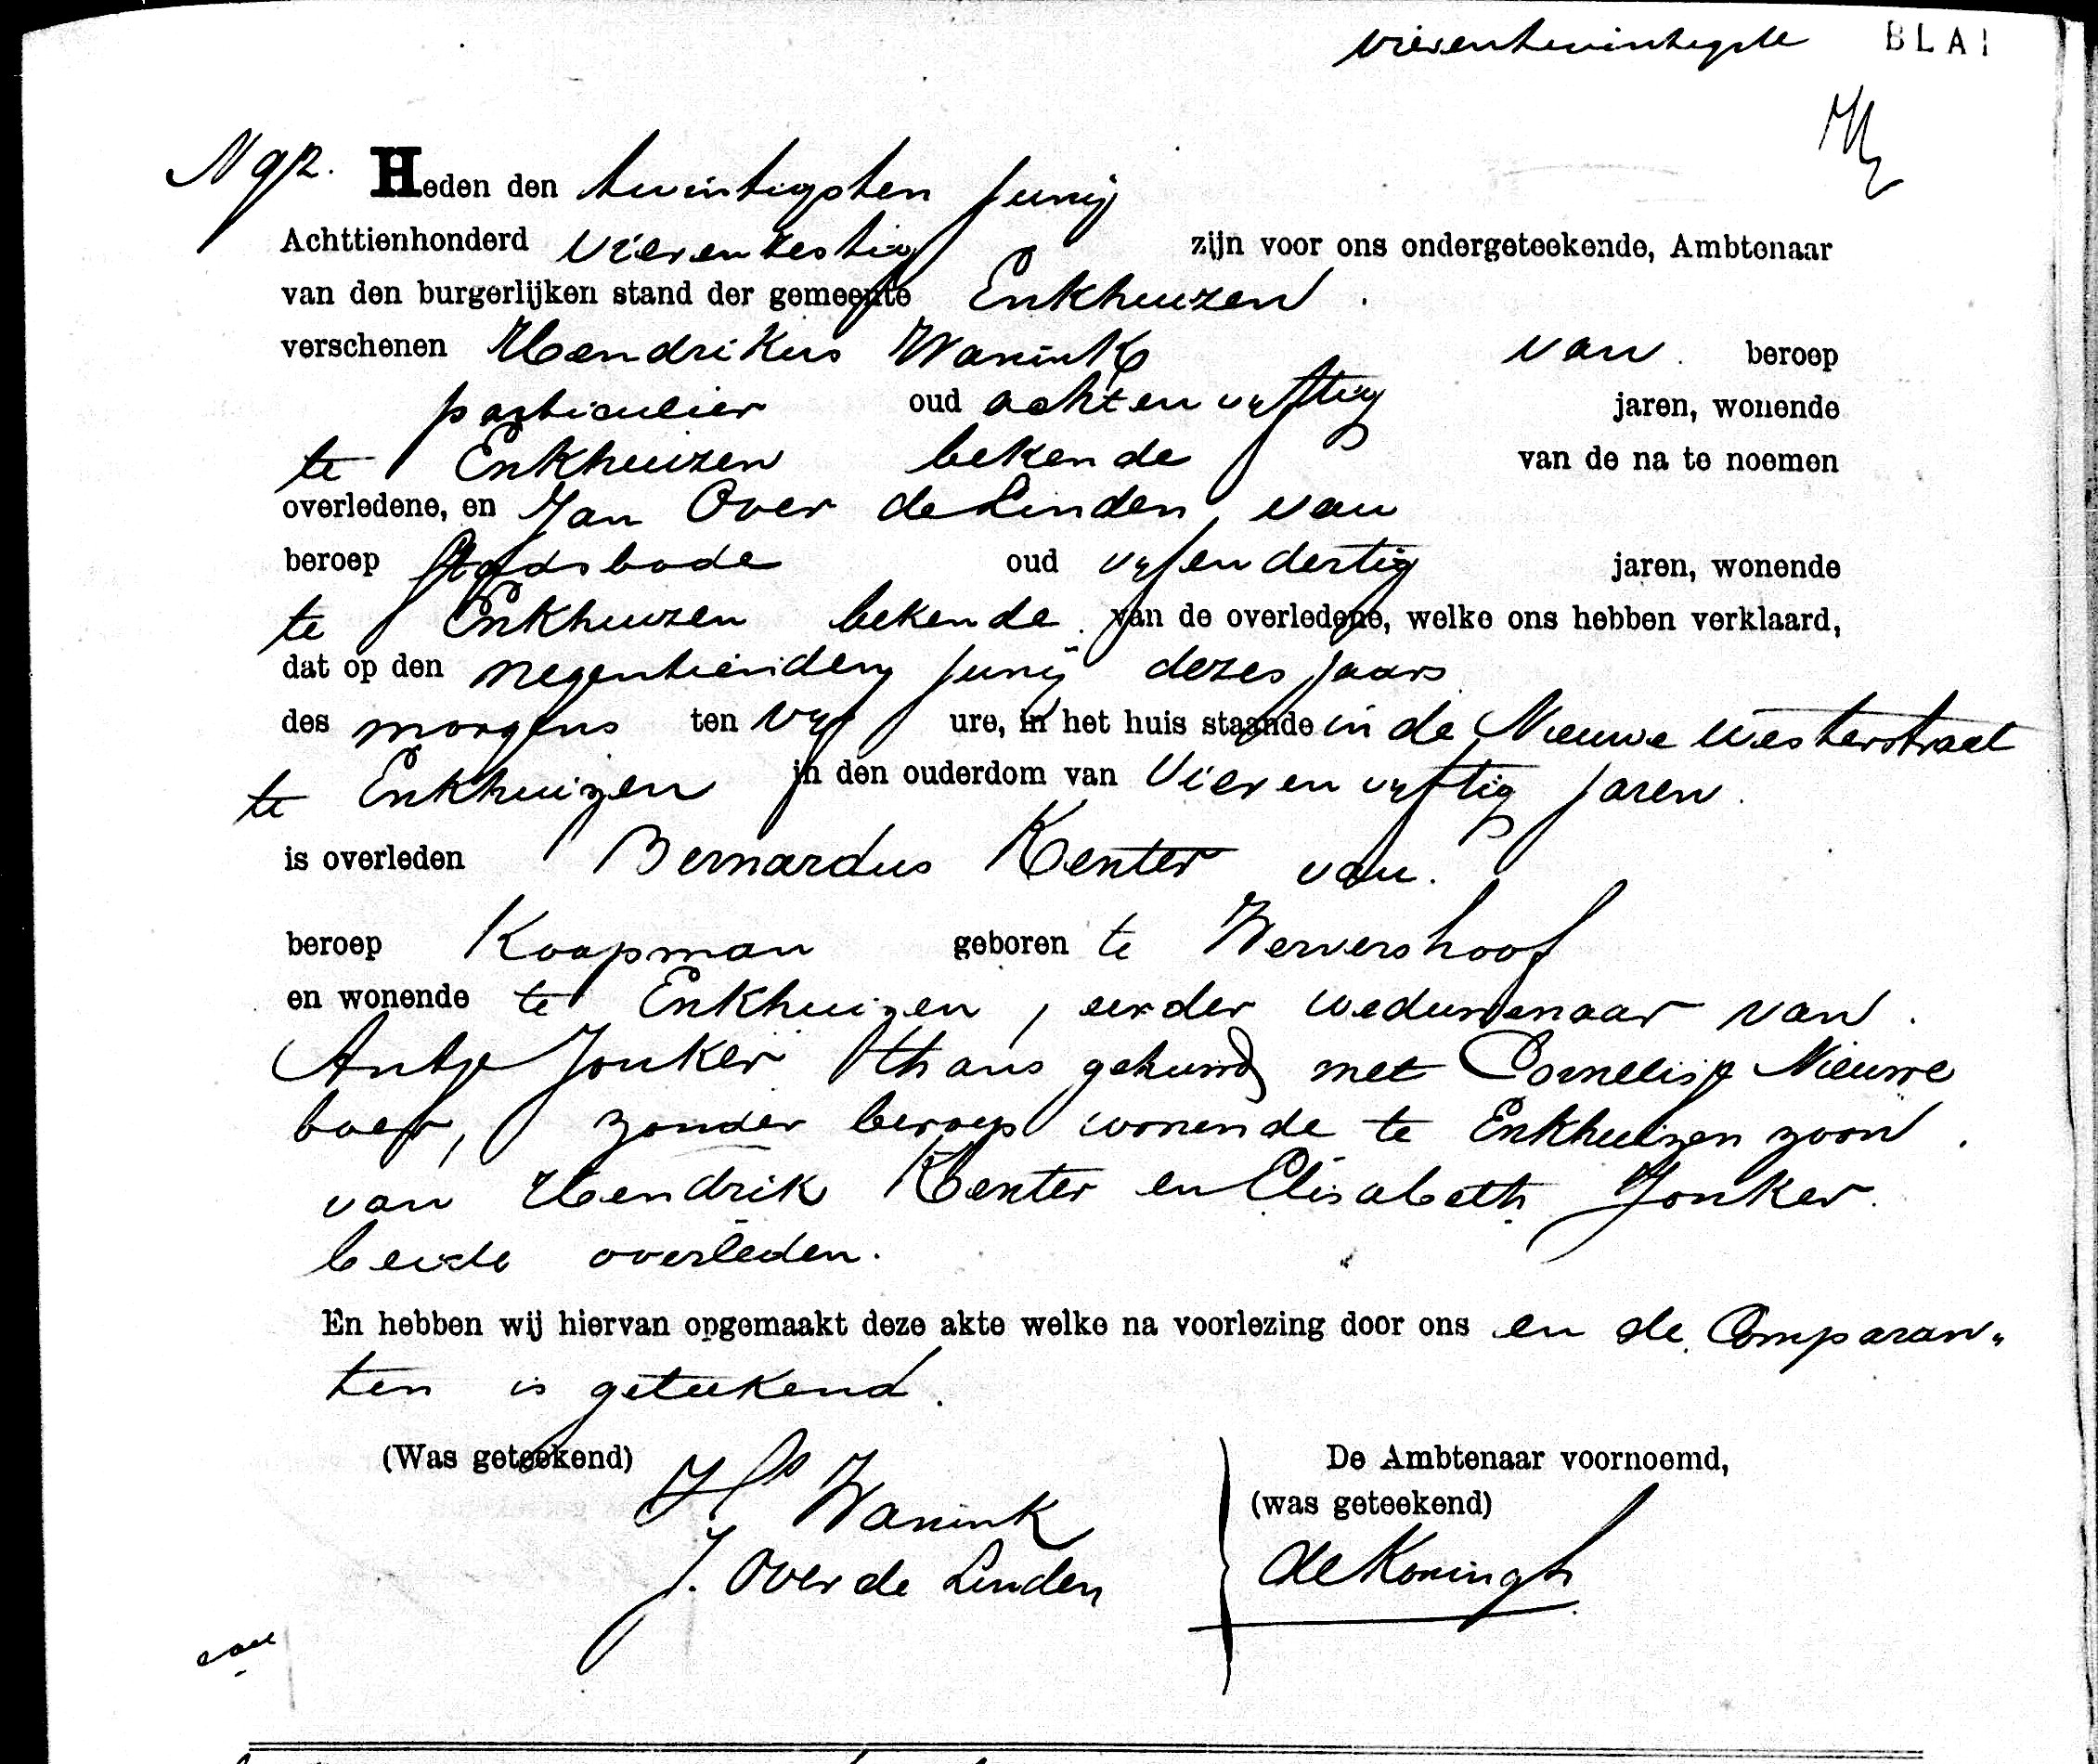 vierentwintigste BLA
N 92. Heden den twintigsten Junij
Achttienhonderd vierenzestig zijn voor ons ondergeteekende, Ambtenaar
van den burgerlijken stand der gemeente Enkhuizen.
verschenen Hendrikus Wanink van beroep
particulier oud achtenvyftig jaren, wonende
te Enkhuizen bekende van de na te noemen
overledene, en Jan Over de Linden, van
beroep Stadsbode oud vyfendertig jaren, wonende
te Enkhuizen bekende van de overledene, welke ons hebben verklaard,
dat op den negentienden Junij dezes jaars
des morgens ten vyf ure, in het huis staande in de Nieuwe Westerstraat
te Enkhuizen in den ouderdom van Vierenvyftig jaren.
is overleden Bernardus Kenter van.
beroep Koopman geboren te Wervershoof
en wonende te Enkhuizen, eerder weduwenaar van.
Antje Jonker thans gehuwd met Cornelisje Nieuwe
boer, zonder beroep wonende te Enkhuizen zoon.
van Hendrik Kenter en Elisabeth Jonker.
beide overleden.
En hebben wij hiervan opgemaakt deze akte welke na voorlezing door ons en de Comparan„
ten is geteekend.
(Was geteekend) Hs Wanink
J. Over de Linden
De Ambtenaar voornoemd,
(was geteekend)
de Koningh